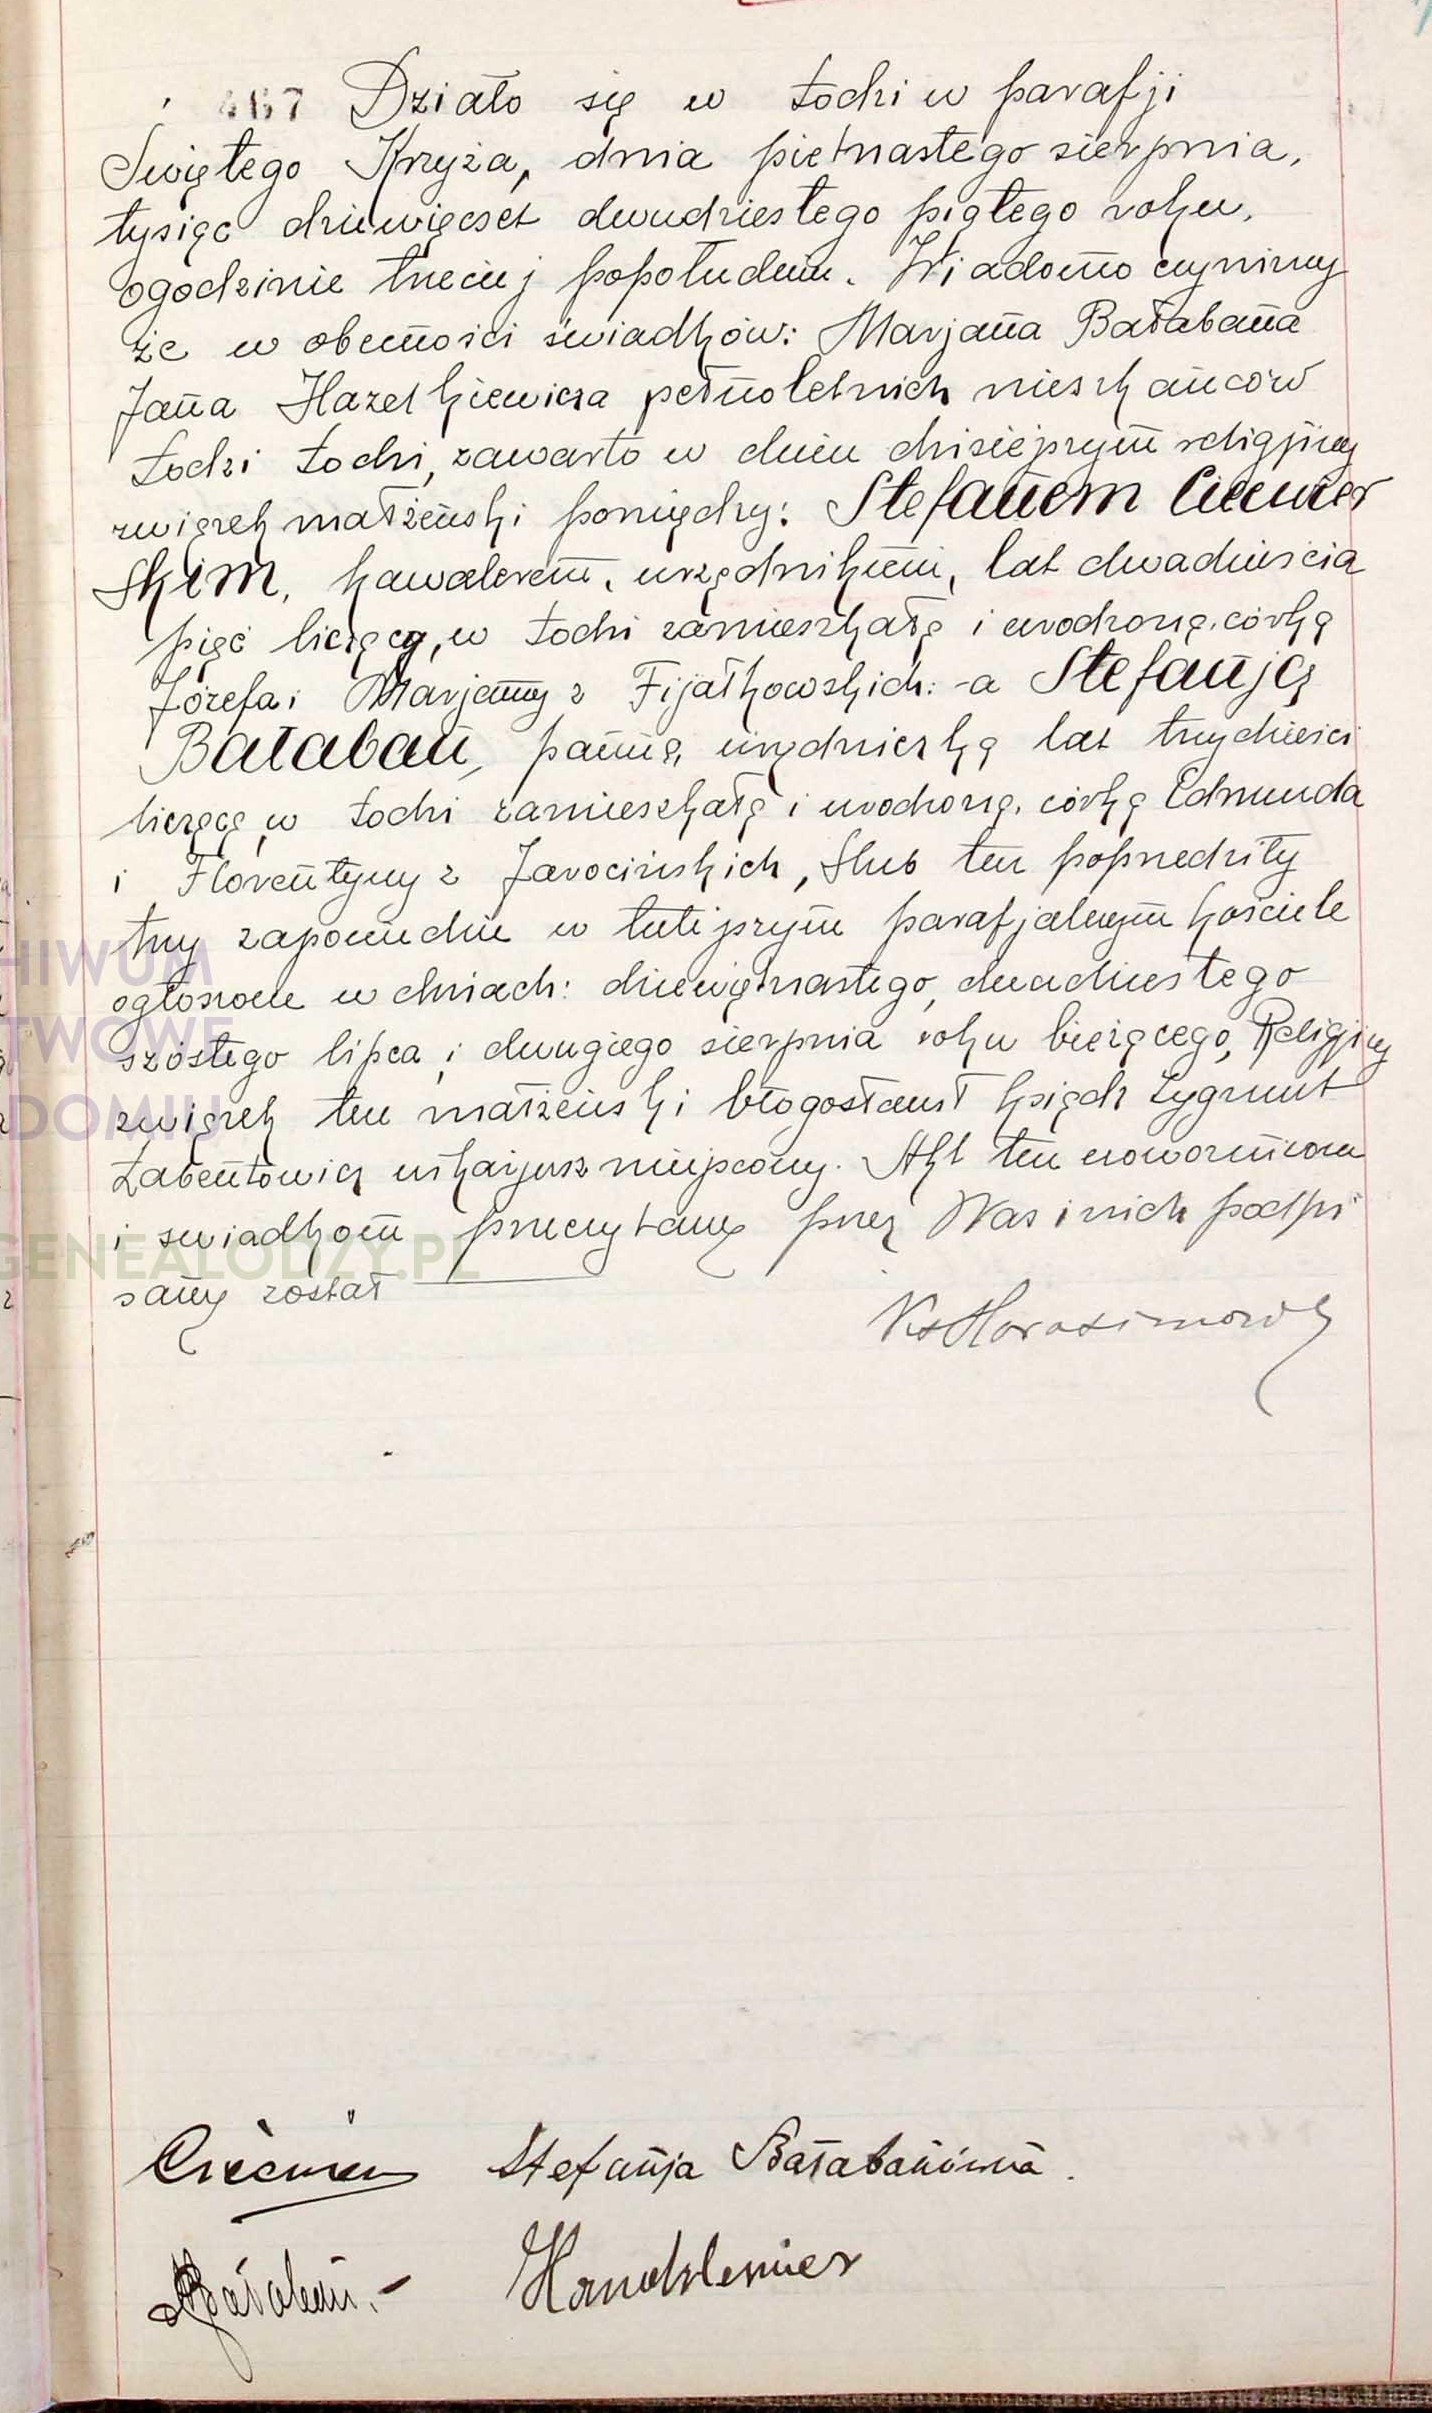 467 Działo się w Łodzi w parafji
Świętego Krzyża, dnia piętnastego sierpnia,
tysiąc dziewięcset dwudziestego piątego roku,
ogodzinie trzeciej popołudniu. Wiadomo czynimy
że w obecności świadków: Marjana Bałabana
Jana Hazelkiewicza pełnoletnich mieszkańców
Łodzi Łodzi, zawarto w dniu dzisiejszym religijny
związek małżeński pomiędzy: Stefanem
skim, kawalerem, urzędnikiem, lat dwadzieścia
pięć liczący, w Łodzi zamieszkałą i urodzoną, córką
Józefa i Marjanny z Fijałkowskich: -a Stefanją
Bałaban, panną, urzędniczką lat trzydzieści
liczącą, w Łodzi zamieszkałą i urodzoną, córką Edmunda
i Florentyny z Jarocińskich, Ślub ten poprzedziły
trzy zapowiedzie w tutejszym parafjalnym kościele
ogłoszone w dniach: dziewiętnastego, dwudziestego
szóstego lipca i drugiego sierpnia roku bieżącego, Religijny
związek ten małżeński błogosławił ksiądz Zygmunt
Łabentowicz wikarjusz miejscowy. Akt ten nowożeńcom
i świadkom przeczytany przez Nas i nich podpi
sany został
Ks Harasimowicz
Stefanja Bałabanówna.
Bałaban. -
HIWUM
TWOWE
ADOMIU
GENEALODZY.PL